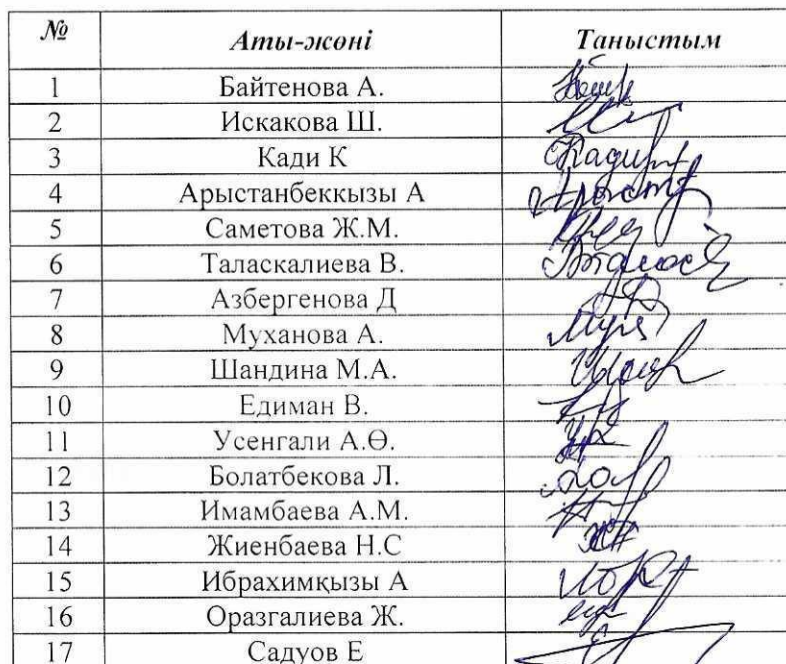 № Аты-жөні Таныстым
1 Байтенова А.
2 Искакова Ш.
3 Кади К
4 Арыстанбеккызы А
5 Саметова Ж.М.
6 Таласкалиева В.
7 Азбергенова Д
8 Муханова А.
9 Шандина М.А.
10 Едиман В.
11 Усенгали А.Ө.
12 Болатбекова Л.
13 Имамбаева А.М.
14 Жиенбаева Н.С
15 Ибрахимқызы А
16 Оразгалиева Ж.
17 Садуов Е